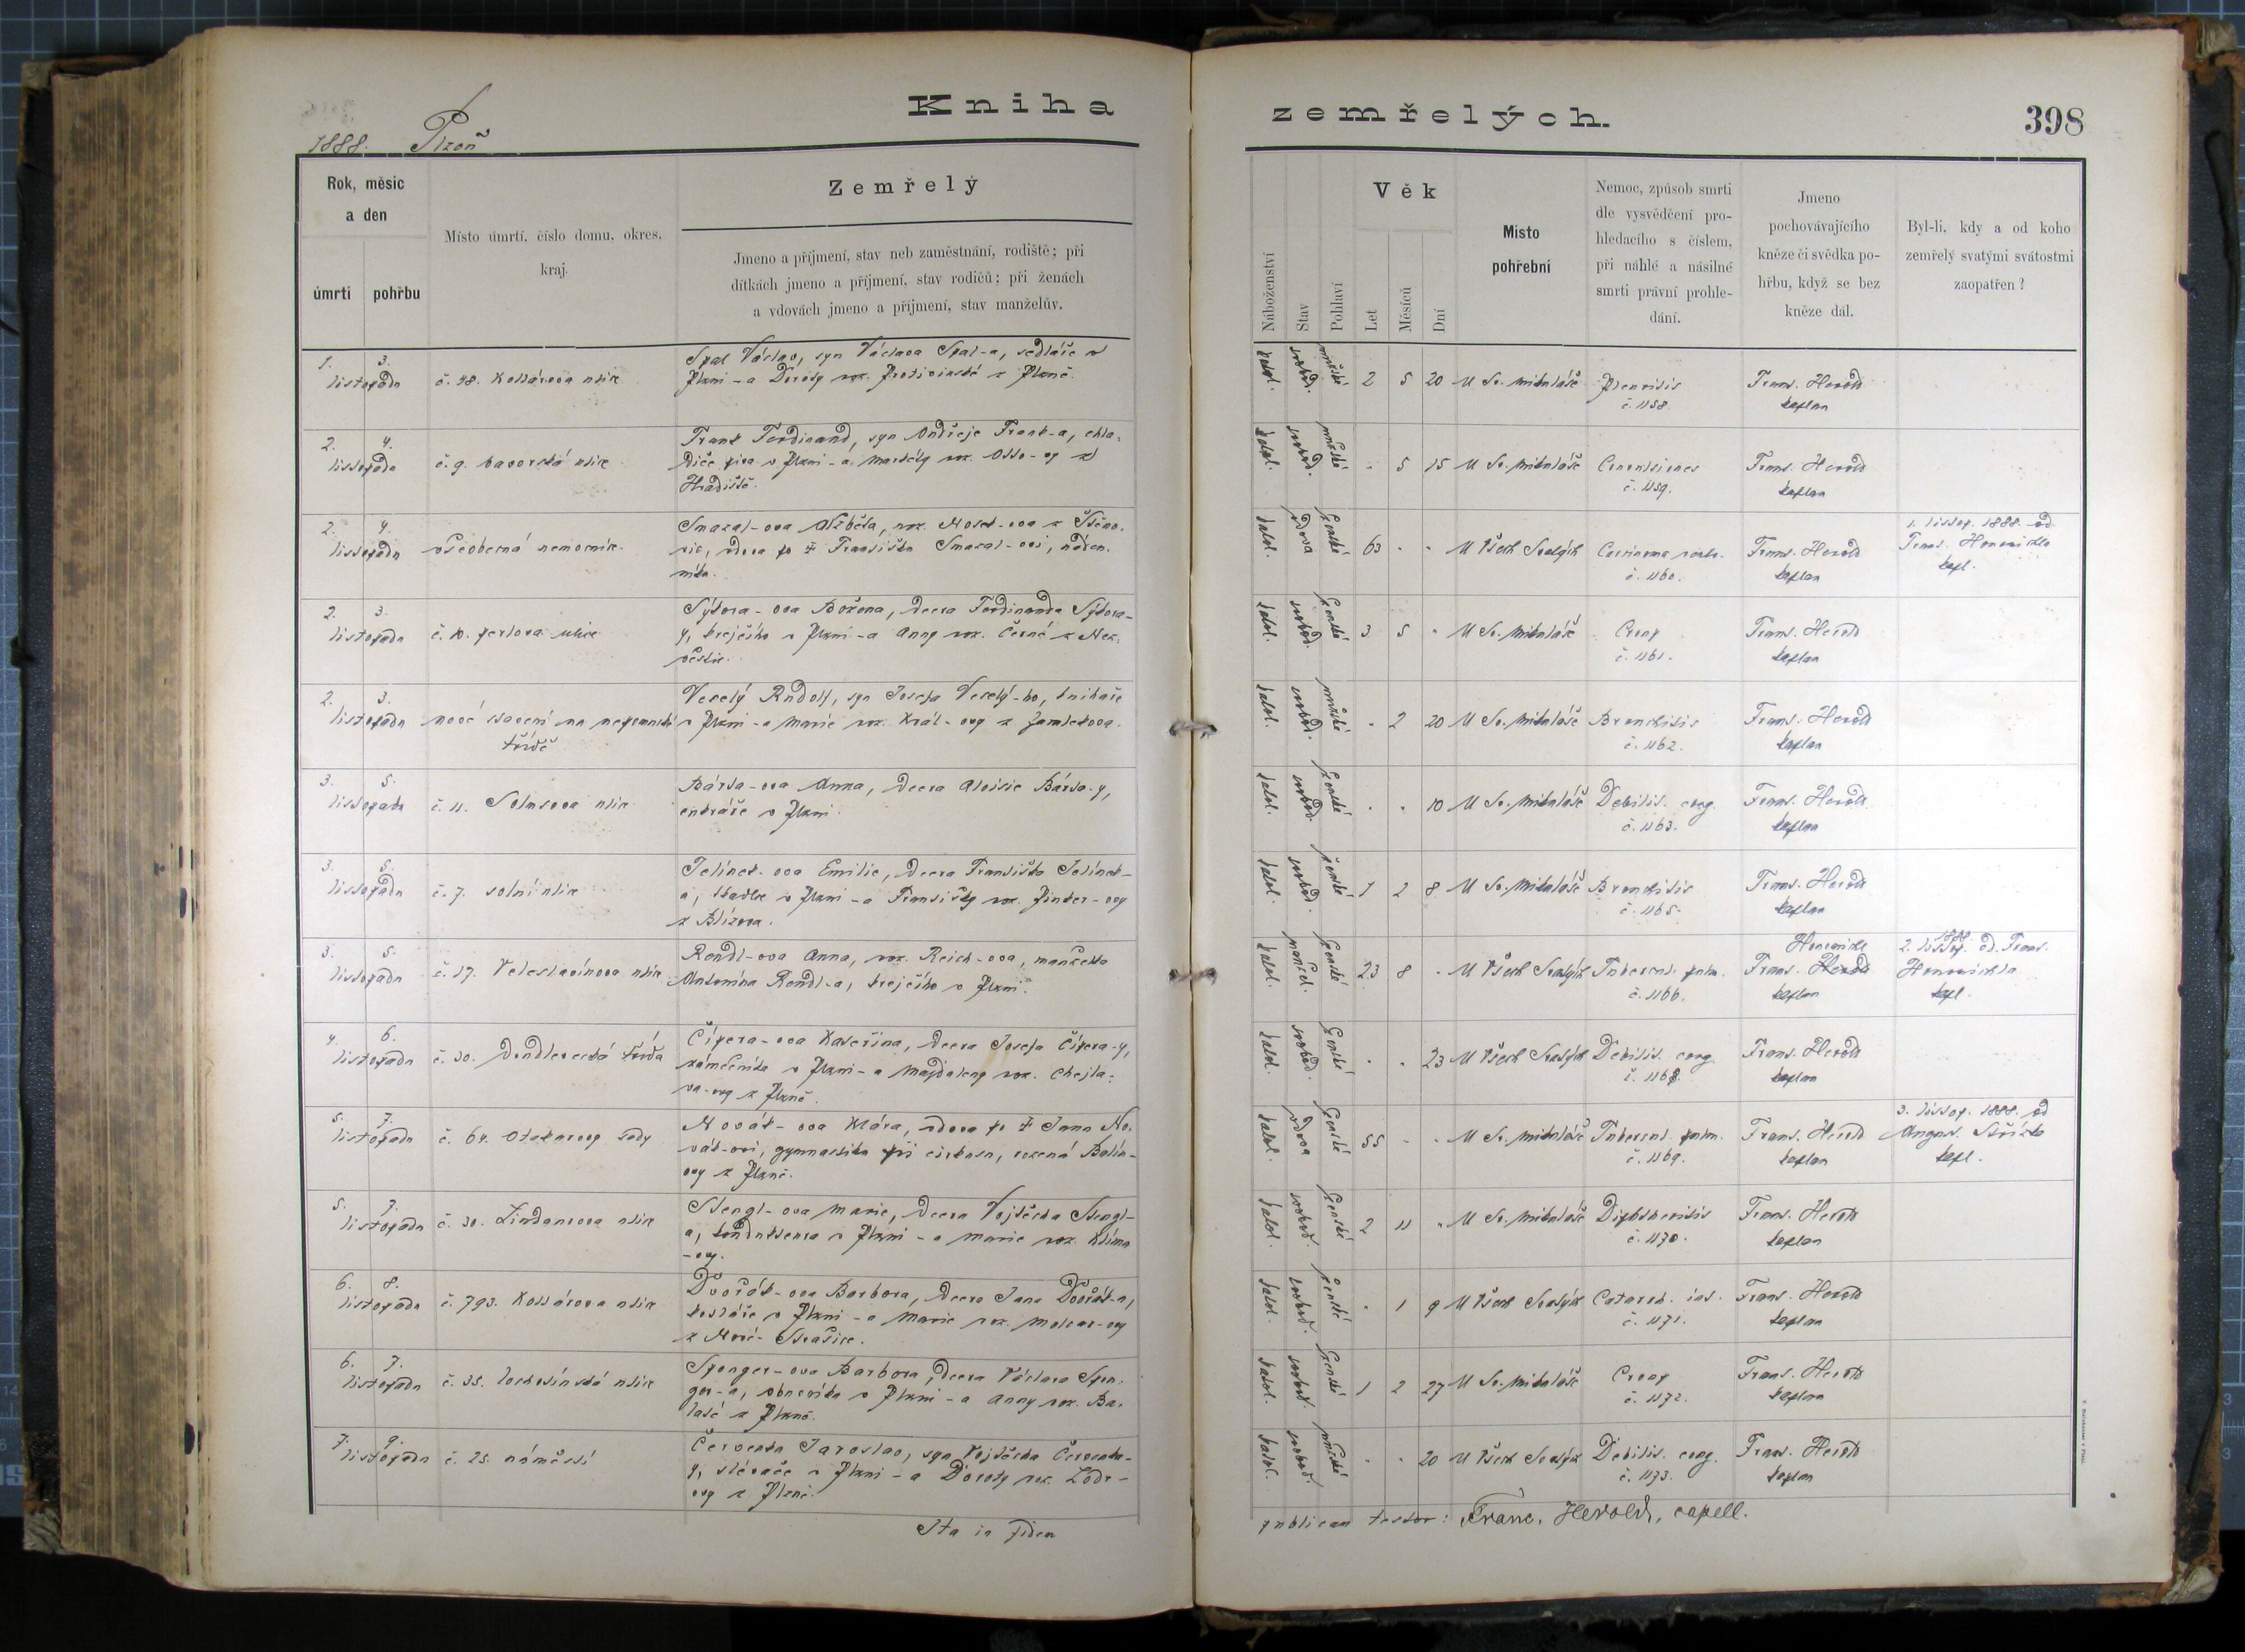 Kniha
zemřelých.
398
1888. Plzeň
Rok, měsíc
a den
úmrtí
pohřbu
Místo úmrtí, číslo domu, okres,
kraj.
Zemřelý
Jmeno a příjmení, stav neb zaměstnání, rodiště; při
dítkách jmeno a příjmení, stav rodičů; při ženách
a vdovách jmeno a příjmení, stav manželův.
Náboženství
Stav
Pohlaví
Věk
Let
Měsíců
Dní
Místo
pohřební
Nemoc, způsob smrti
dle vysvědčení pro-
hledacího s číslem,
při náhlé a násilné
smrti právní prohle-
dání.
Jmeno
pochovávajícího
kněze či svědka po-
hřbu, když se bez
kněze dál.
Byl-li, kdy a od koho
zemřelý svatými svátostmi
zaopatřen?
1. 3.
listopadu č. 48. Kollárova ulice
Václav, syn Václava
Plzni - a Doroty roz. z Plzně.
katol. svobod. mužské 2 5 20 U Sv. Mikuláše Pleuritis
č. 1158.
Franc. Herold
kaplan
2. 4.
listopadu č. 9. bavorská ulice
Frank Ferdinand, syn Ondřeje Frank-a, chla-
diče piva v Plzni - a Markéty roz. Otto-vy z
Hradiště.
katol. svobod. mužské - 5 15 U Sv. Mikuláše
č. 1159.
Franc. Herold
kaplan
2. 4.
listopadu všeobecná nemocnice
Smazal-ova Alžběta, roz.
vdova po † Františku Smazal-ovi, náden-
níku.
katol. vdova ženské 63 - - U Všech Svatých Carcinoma
č. 1160.
Franc. Herold
kaplan
1. listop. 1888. od
Franc. Honomichla
kapl.
2. 3.
listopadu č. 10. perlova ulice
Sýkora-ova Božena, dcera Ferdinanda Sýkora-
y, krejčího v Plzni - a Anny roz. Černé z
katol. svobod. ženské 3 5 - U Sv. Mikuláše Croup
č. 1161.
Franc. Herold
kaplan
2. 3.
listopadu nové stavení na nepomucké
třídě
Veselý Rudolf, syn Josefa Veselý-ho, knihaře
v Plzni - a Marie roz. Král-ovy z
katol. svobod. mužské - 2 20 U Sv. Mikuláše Bronchitis
č. 1162.
Franc. Herold
kaplan
3. 5.
listopadu č. 11. Solmsova ulice
Bárta-ova Anna, dcera Aloisie Bárta-y,
cukráře v Plzni
katol. svobod. ženské - - 10 U Sv. Mikuláše Debilit. cong.
č. 1163.
Franc. Herold
kaplan
3. 5.
listopadu č. 7. solní ulice
Jelínek-ova Emilie, dcera Františka Jelínek-
a, tkadlce v Plzni - a Františky roz. Pinker-ovy
z Blízova.
katol. svobod. ženské 1 2 8 U Sv. Mikuláše Bronchitis
č. 1165.
Franc. Herold
kaplan
3. 5.
listopadu č. 17. Veleslavínova ulice
Rendl-ova Anna, roz. Reich-ova, manželka
Antonína Rendl-a, krejčího v Plzni.
katol. manžel. ženské 23 8 - U Všech Svatých Tubercul. pulm.
č. 1166.
Honomichl
Franc. Herold
kaplan
1888
2. listop. od Franc.
Honomichla
kapl.
4. 6.
listopadu č. 30. Doudlevecká třída
Čípera-ova Kateřina, dcera Josefa Čípera-y,
zámečníka v Plzni - a Majdaleny roz. Chejla-
va-ovy z Plzně.
katol. svobod. ženské - - 23 U Všech Svatých Debilit. cong.
č. 1168.
Franc. Herold
kaplan
5. 7.
listopadu č. 64. Otakarovy sady
Novák-ova Klára, vdova po † Janu No-
vák-ovi, gymnastika při cirkusu, rozená
ovy z Plzně.
katol. vdova ženské 55 - - U Sv. Mikuláše Tubercul. pulm.
č. 1169.
Franc. Herold
kaplan
3. listop. 1888. od
August.
kapl.
5. 7.
listopadu č. 30. Lindaurova ulice
Stengl-ova Marie, dcera Vojtěcha Stengl-
a, konduktora v Plzni - a Marie roz. Klíma
-ovy.
katol. svobod. ženské 2 11 - U Sv. Mikuláše Diphtheritis
č. 1170.
Franc. Herold
kaplan
6. 8.
listopadu č. 793. Kollárova ulice
Dvořák-ova Barbora, dcera Jana Dvořák-a,
kotláře v Plzni - a Marie roz. Molcar-ovy
z Nové Strašice.
katol. svobod. ženské - 1 9 U Všech Svatých Catarrh. int.
č. 1171.
Franc. Herold
kaplan
6. 7.
listopadu č. 35. lochotínská ulice
Spenger-ova Barbora, dcera Václava Spen-
ger-a, obuvníka v Plzni - a Anny roz. Ba-
laté z Plzně.
katol. svobod. ženské 1 2 27 U Sv. Mikuláše Croup
č. 1172.
Franc. Herold
kaplan
7. 9.
listopadu č. 25. náměstí
Červenka Jaroslav, syn Vojtěcha Červenka-
y, slévače v Plzni - a Doroty roz.
ovy z Plzně.
katol. svobod. mužské - - 20 U Všech Svatých Debilit. cong.
č. 1173.
Franc. Herold
kaplan
Ita in fidem
publicam testor: Franc. Herold, capell.